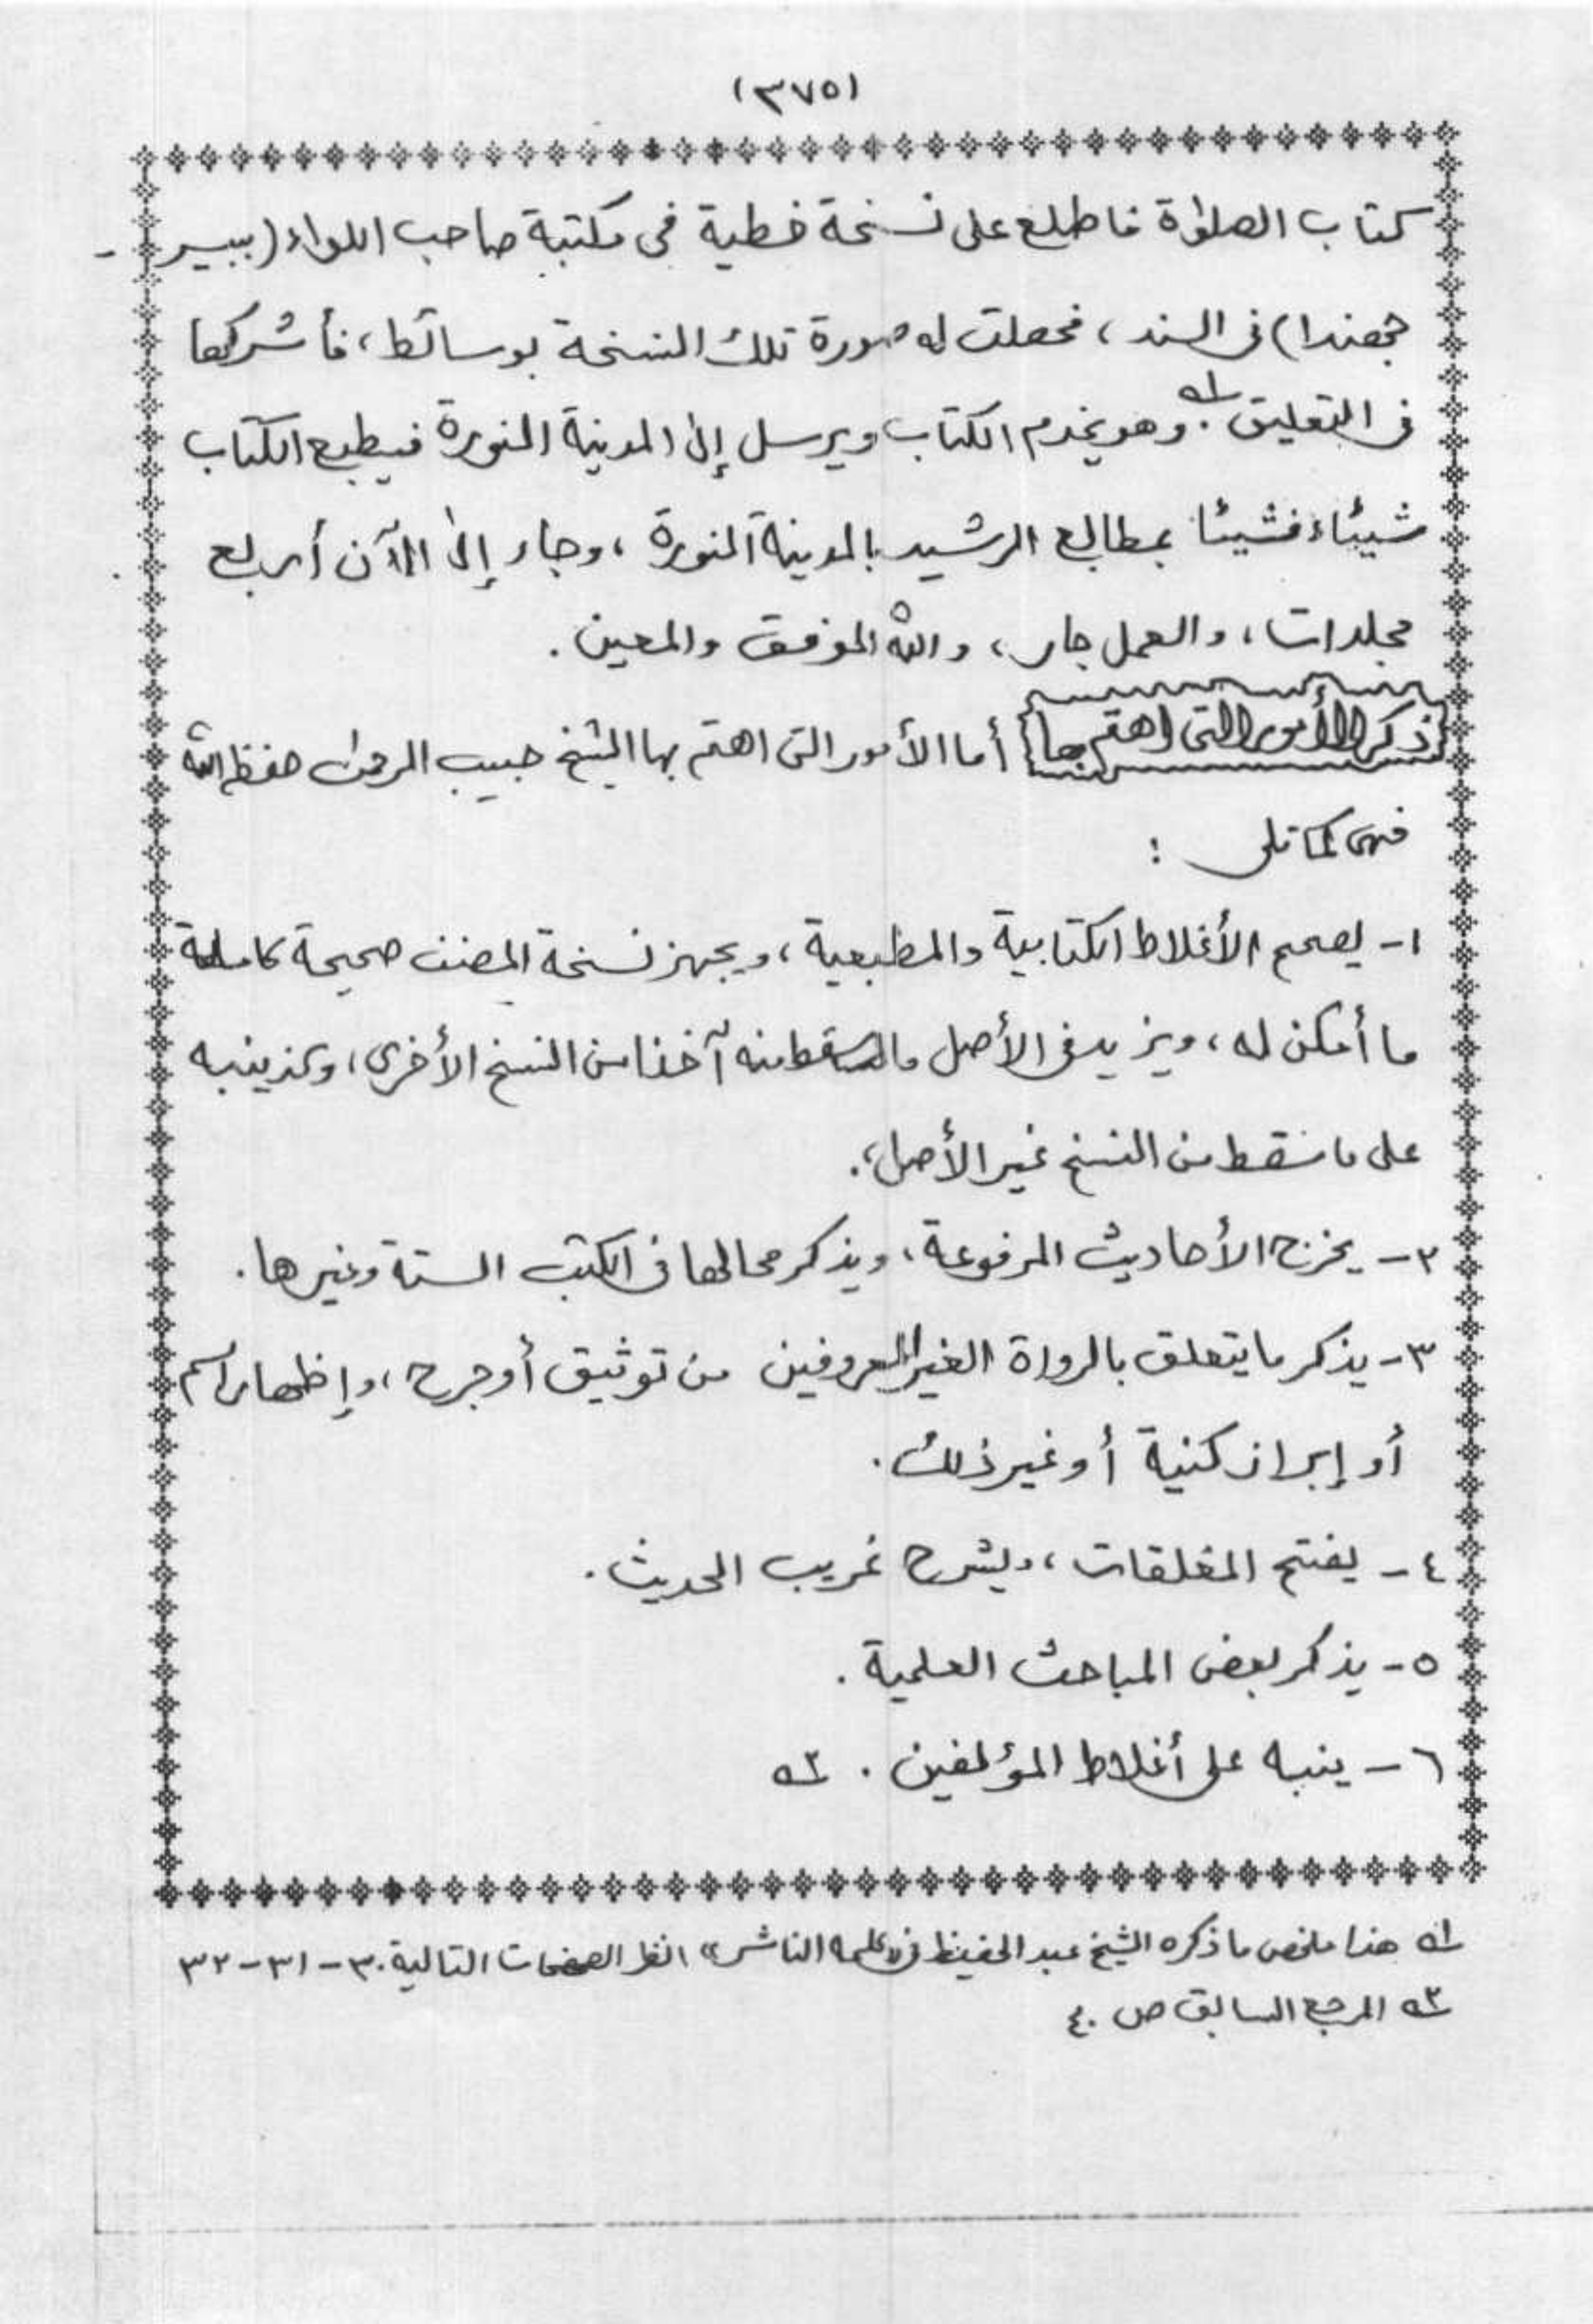 (٣٧٥)
كتاب الصلواة فاطلع على نسخة خطية فى مكتبة صاحب اللواء (بيير -
جهندا) فى السند ، فحصلت له صورة تلك النسخة بوسائط ، فأشركها
فى التعليق .١ه وهو يخدم الكتاب ويرسل إلى المدينة المنورة فيطبع الكتاب
شيئاء فشيئا بمطابع الرشيد بالمدينة المنورة ، وجاء إلى الآن أربع
مجلدات ، والعمل جار ، والله الموفق والمعين .
ذكر الأمور التى اهتم بها أما الأمور التى اهتم بها الشيخ حبيب الرحمن حفظه الله
فهى كما تلى :
١- يصحح الأغلاط الكتابية والمطبعية ، ويجهز نسخة المصنف صحيحة كاملة
ما أمكن له ، ويزيد فى الأصل ما سقط منه آخذا من النسخ الأخرى ، وكذ ينبه
على ما سقط من النسخ غير الأصل ، .
٢- يخرج الأحاديث المرفوعة ، ويذكر محالها فى الكتب الستة وغيرها .
٣- يذكر ما يتعلق بالرواة الغير المعروفين من توثيق أو جرح ، وإظهار اسم
أو إبراز كنية أو غير ذلك .
٤- يفتح المغلقات ، ويشرح غريب الحديث .
٥- يذكر بعض المباحث العلمية .
٦- ينبه على أغلاط المؤلفين . ٢ه
١ه هذا ملخص ما ذكره الشيخ عبد الحفيظ فى «كلمه الناشر» انظر الصفحات التالية ٣٠-٣١-٣٢
٢ه المرجع السابق ص ٤٠